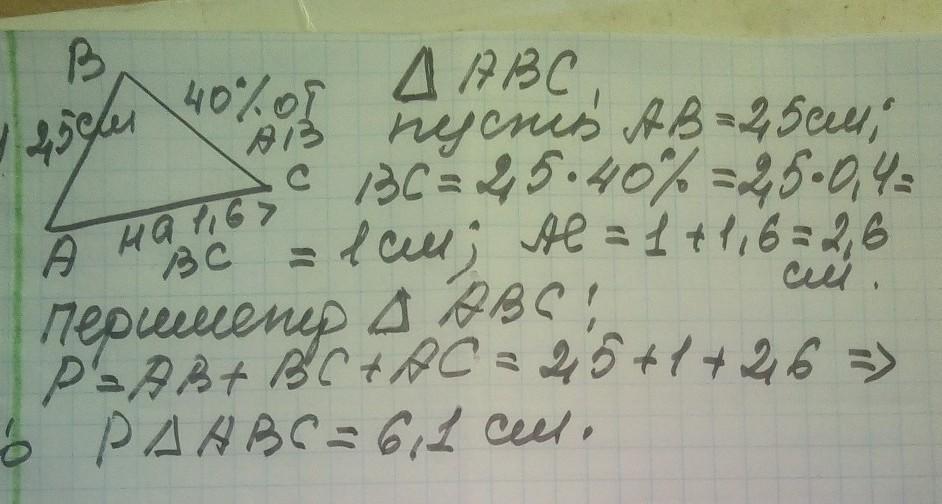 B
2,5 см
40% от
AB
C
A
на 1,6 >
BC
Δ ABC,
пусть AB = 2,5 см;
BC = 2,5 · 40% = 2,5 · 0,4 =
= 1 см; AC = 1 + 1,6 = 2,6
см.
периметр Δ ABC:
P = AB + BC + AC = 2,5 + 1 + 2,6 =>
P Δ ABC = 6,1 см.